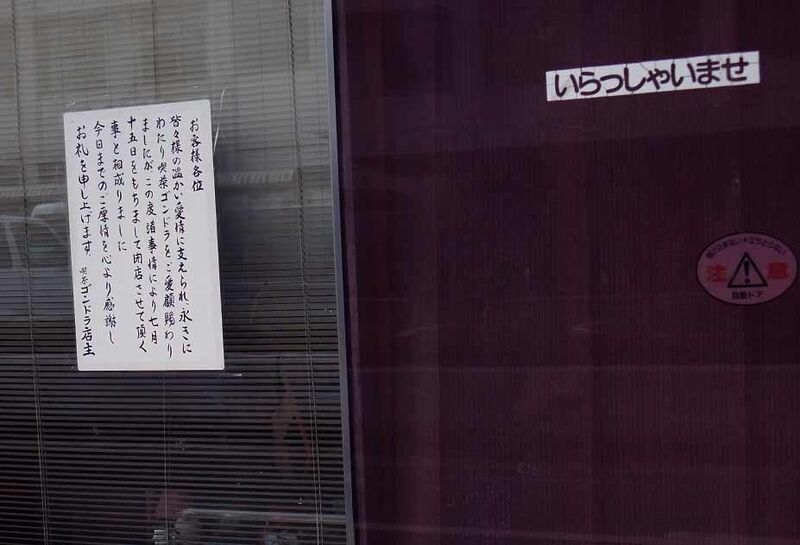 お客様各位
皆々様の温かい愛情に支えられ、永きに
わたり喫茶ゴンドラをご愛顧賜わり
ましたが、この度諸事情により七月
十五日をもちまして閉店させて頂く
事と相成りました
今日までのご厚情を心より感謝し
お礼を申し上げます。
喫茶ゴンドラ店主
いらっしゃいませ
駆け込まない・立ちどまらない
注意
自動ドア